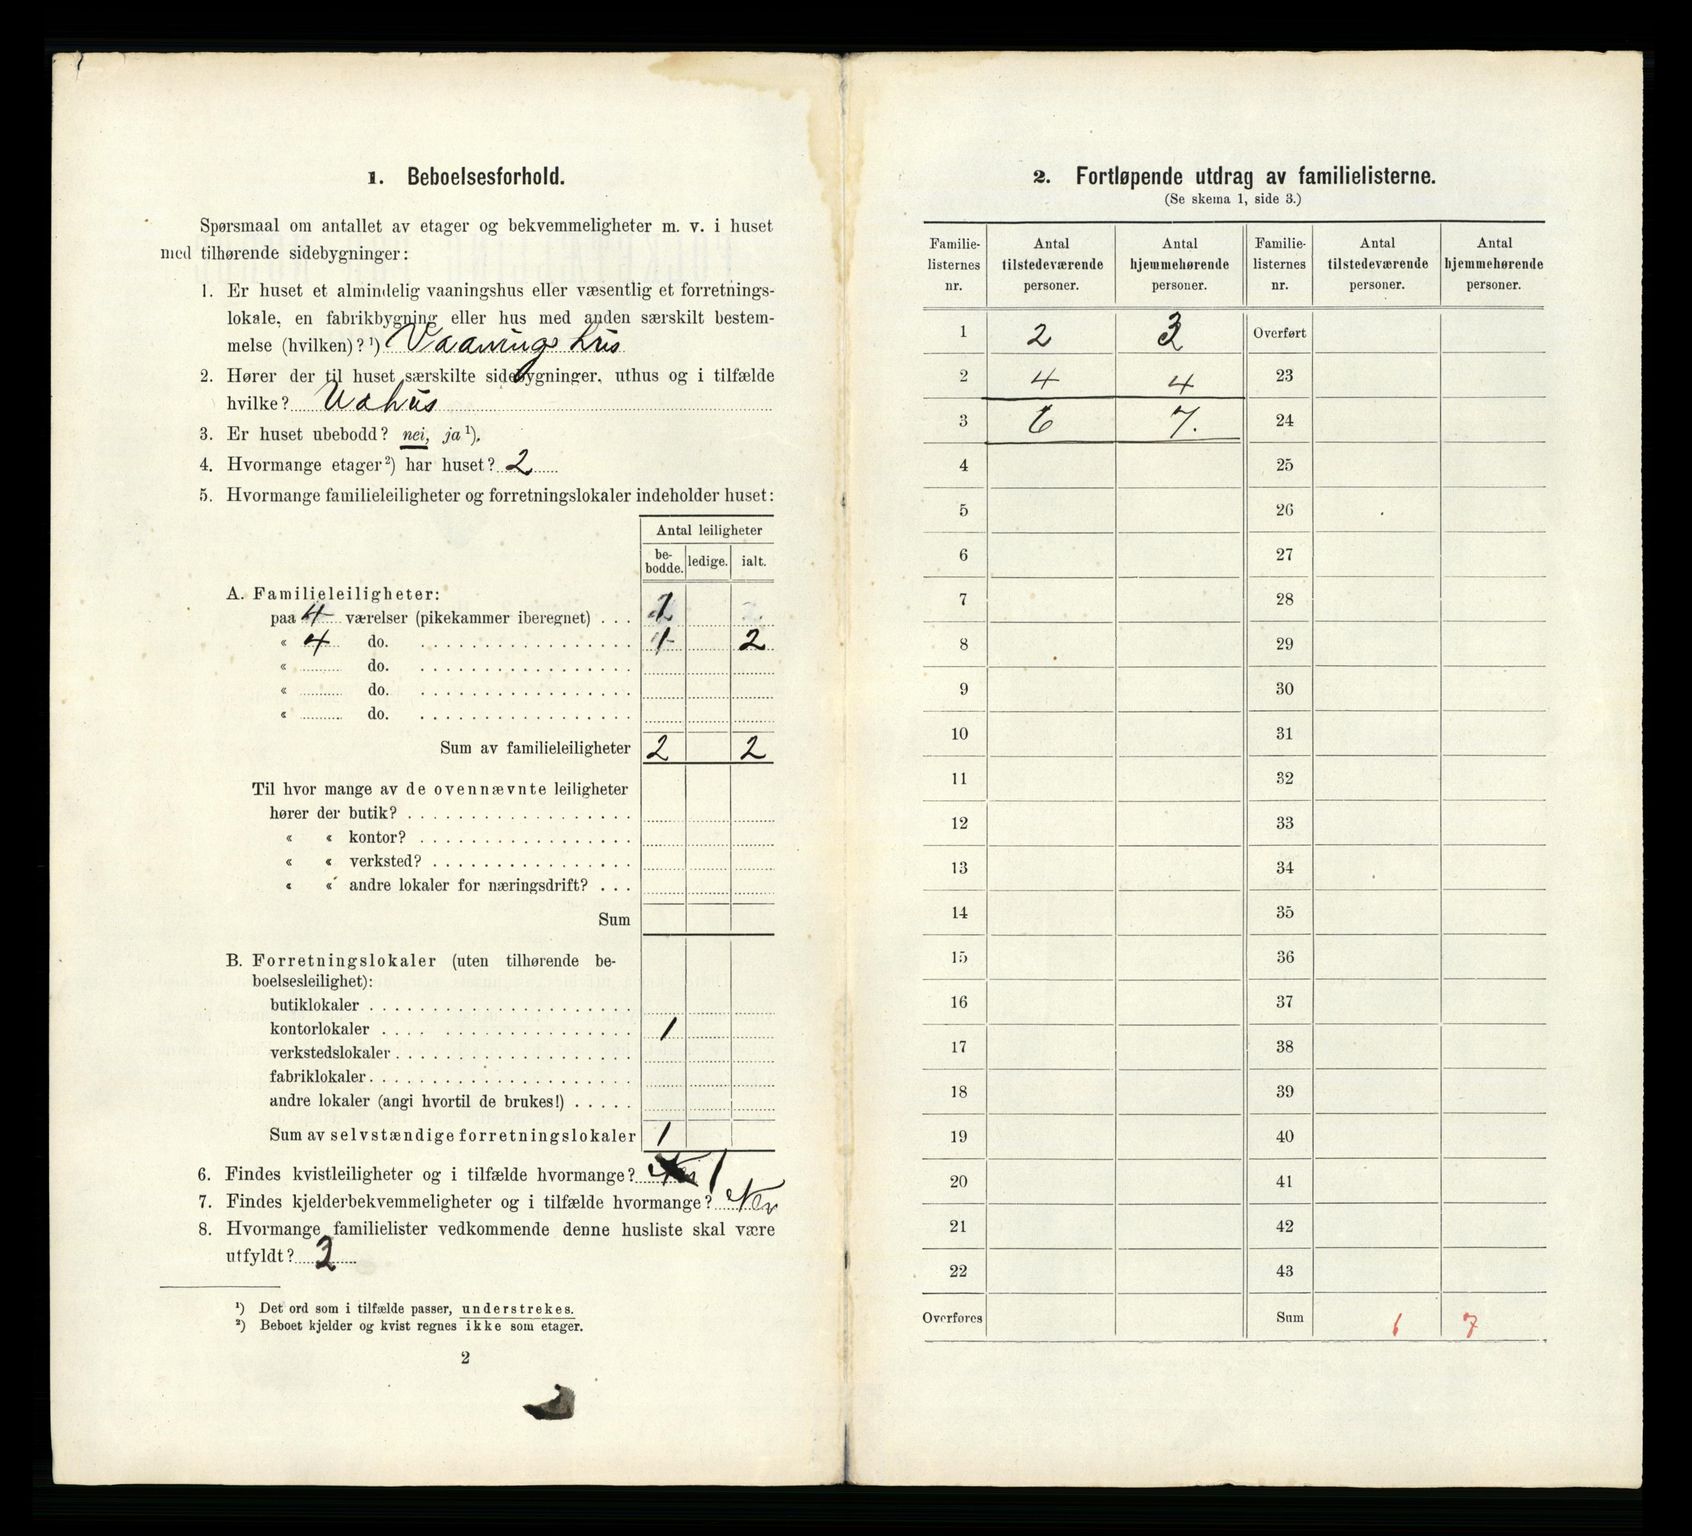 1. Beboelsesforhold.
Spørsmaal om antallet av etager og bekvemmeligheter m. v. i huset
med tilhørende sidebygninger:
1. Er huset et almindelig vaaningshus eller væsentlig et forretnings-
lokale, en fabrikbygning eller hus med anden særskilt bestem-
melse (hvilken)? ¹) Vaaningshus
2. Hører der til huset særskilte sidebygninger, uthus og i tilfælde
hvilke? Udhus
3. Er huset ubebodd? nei, ja ¹).
4. Hvormange etager ²) har huset? 2
5. Hvormange familieleiligheter og forretningslokaler indeholder huset:
Antal leiligheter
be-bodde. ledige. ialt.
A. Familieleiligheter:
paa 4 værelser (pikekammer iberegnet) . . . 1
« 4 do. . . . . . . . . . . . . . . . . . 1 2
« do. . . . . . . . . . . . . . . . . .
« do. . . . . . . . . . . . . . . . . .
« do. . . . . . . . . . . . . . . . . .
Sum av familieleiligheter 2 2
Til hvor mange av de ovennævnte leiligheter
hører der butik? . . . . . . . . . . . . . . . . . .
« « kontor? . . . . . . . . . . . . . . . . .
« « verksted? . . . . . . . . . . . . . . . .
« « andre lokaler for næringsdrift? . . .
Sum
B. Forretningslokaler (uten tilhørende be-
boelsesleilighet):
butiklokaler . . . . . . . . . . . . . . . . . . . .
kontorlokaler . . . . . . . . . . . . . . . . . . 1
verkstedslokaler . . . . . . . . . . . . . . . . . .
fabriklokaler . . . . . . . . . . . . . . . . . . . .
andre lokaler (angi hvortil de brukes!) . . . . .
Sum av selvstændige forretningslokaler 1
6. Findes kvistleiligheter og i tilfælde hvormange? Nei 1
7. Findes kjelderbekvemmeligheter og i tilfælde hvormange? Nei
8. Hvormange familielister vedkommende denne husliste skal være
utfyldt? 2
¹) Det ord som i tilfælde passer, understrekes.
²) Beboet kjelder og kvist regnes ikke som etager.
2
2. Fortløpende utdrag av familielisterne.
(Se skema 1, side 3.)
Familie- Antal Antal Familie- Antal Antal
listernes tilstedeværende hjemmehørende listernes tilstedeværende hjemmehørende
nr. personer. personer. nr. personer. personer.
1 2 3 Overført
2 4 4 23
3 6 7. 24
4 25
5 26
6 27
7 28
8 29
9 30
10 31
11 32
12 33
13 34
14 35
15 36
16 37
17 38
18 39
19 40
20 41
21 42
22 43
Overføres Sum 6 7